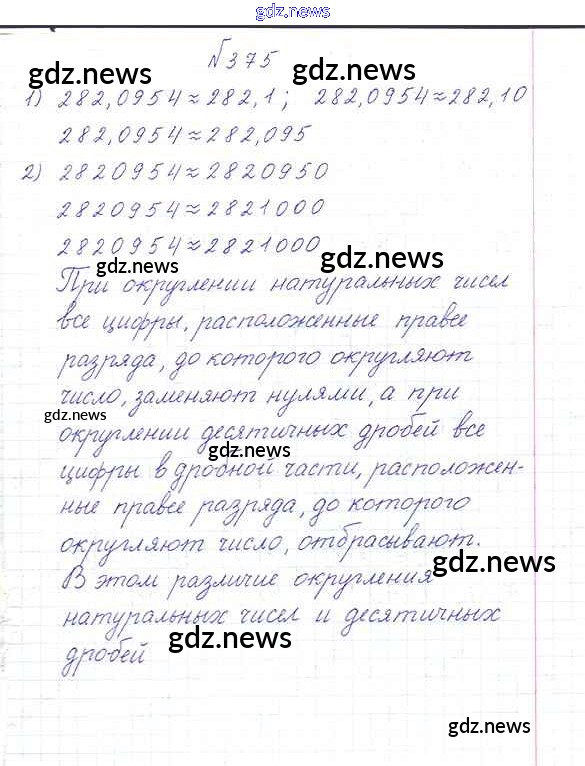 gdz.news
№375
gdz.news gdz.news
1) 282,0954≈282,1; 282,0954≈282,10
282,0954≈282,095
2) 2820954≈2820950
2820954≈2821000
2820954≈2821000
gdz.news gdz.news
При округлении натуральных чисел
все цифры, расположенные правее
разряда, до которого округляют
число, заменяют нулями, а при
gdz.news
округлении десятичных дробей все
gdz.news
цифры в дробной части, расположен-
ные правее разряда, до которого
округляют число, отбрасывают.
gdz.news
В этом различие округления
натуральных чисел и десятичных
gdz.news
дробей
gdz.news